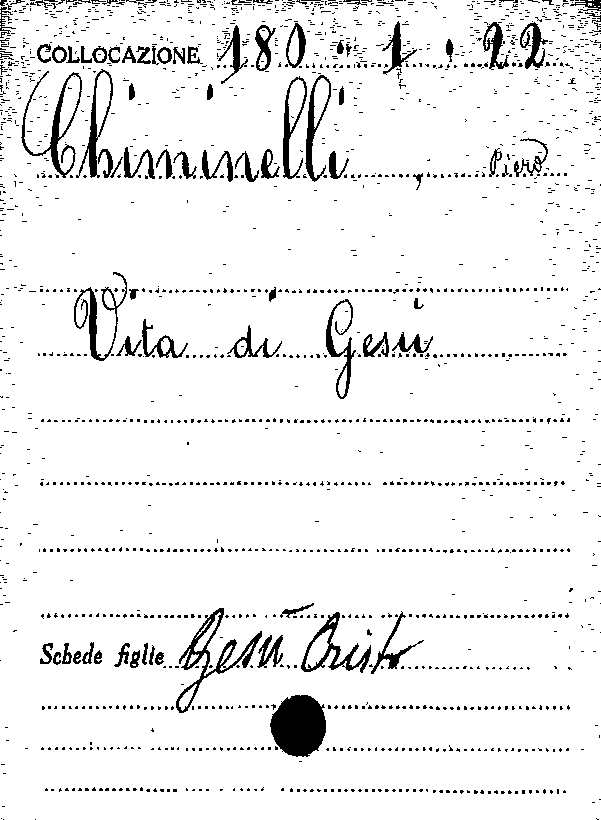 COLLOCAZIONE 180.1.22
Chiminelli, Piero
Vita di Gesù
Schede figlie Gesù Cristo